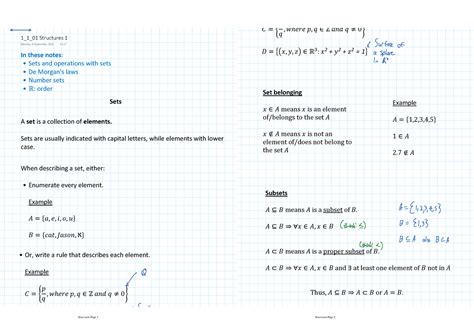 1_1_01 Structures 1
In these notes:
• Sets and operations with sets
• De Morgan's laws
• Number sets
• ℝ: order
Sets
A set is a collection of elements.
Sets are usually indicated with capital letters, while elements with lower
case.
When describing a set, either:
• Enumerate every element.
Example
A = {a, e, i, o, u}
B = {cat, fason, ℵ}
• Or, write a rule that describes each element.
Example
Q
C = {p/q, where p, q ∈ ℤ and q ≠ 0}
C = {p/q, where p, q ∈ ℤ and q ≠ 0}
D = {(x, y, z) ∈ ℝ³: x² + y² + z² = 1}
Surface of
a sphere
in ℝ³
Set belonging
x ∈ A means x is an element
of/belongs to the set A
x ∉ A means x is not an
element of/does not belong to
the set A
Example
A = {1,2,3,4,5}
1 ∈ A
2.7 ∉ A
Subsets
A ⊆ B means A is a subset of B.
A ⊆ B ⇒ ∀x ∈ A, x ∈ B
A ⊂ B means A is a proper subset of B.
A ⊂ B ⇒ ∀x ∈ A, x ∈ B and ∃ at least one element of B not in A
Thus, A ⊆ B ⇒ A ⊂ B or A = B.
A = {1,2,3,4,5}
B = {1,3}
B ⊆ A also B ⊂ A